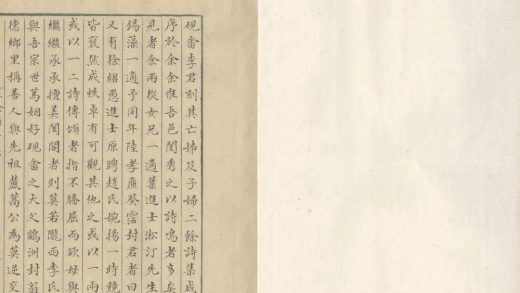 硯畬李君刻其亡姊及子婦二餘詩集成
序於余余惟吾邑閨秀之以詩鳴者多矣
見者余兩從女兄一適葉進士淞汀先生
錫藻一適予同年陸孝廉癸霑封君者曰
又有徐紹愚進士原聘趙氏婉揚一時競
皆裒然成帙卓有可觀其他之或以一兩
或以一二詩傳頌者指不勝屈而欲毋與
繼繼承承擅美閨闥者則莫若隴西李氏
與吾宗世為姻好硯畬之大父鶴洲封翁
德鄉里稱善人與先祖蔗萬公為莫逆交